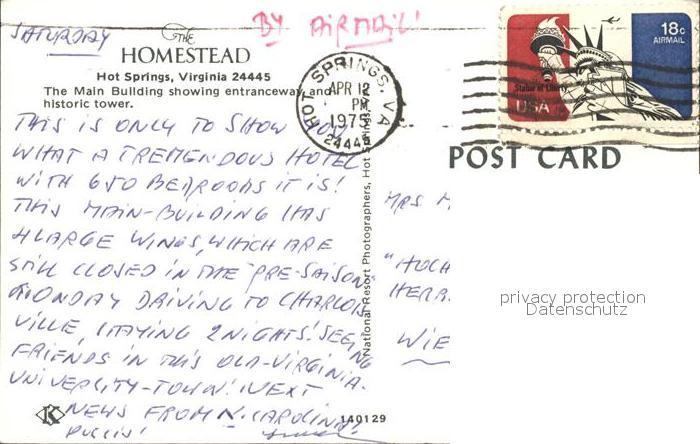 SATURDAY
BY AIRMAIL!
The
HOMESTEAD
Hot Springs, Virginia 24445
The Main Building showing entranceway and
historic tower.
HOT SPRINGS, VA
APR 12
PM
1975
24445
18c
AIRMAIL
Statue of Liberty
USA
POST CARD
THIS IS ONLY TO SHOW YOU
WHAT A TREMENDOUS HOTEL
WITH 650 BEDROOMS IT IS!
THIS MAIN-BUILDING HAS
4 LARGE WINGS, WHICH ARE
STILL CLOSED IN THE "PRE-SAISON"
MONDAY DRIVING TO CHARLOTS
VILLE, STAYING 2 NIGHTS! SEEING
FRIENDS IN THIS OLD-VIRGINIA-
UNIVERCITY-TOWN! NEXT
NEWS FROM N-CAROLINA!
National Resort Photographers, Hot Springs
MRS M
"HOCH
HERR
WIE
privacy protection
Datenschutz
K
140129